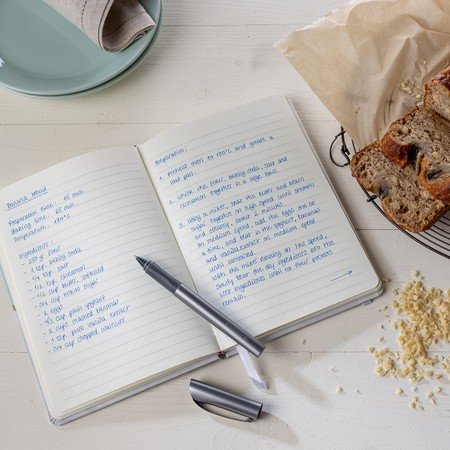 Banana Bread
Preparation time: 15 min.
Baking time: 65 min.
Temperature: 180°C
Ingredients:
- 250 g flour
- 1 tsp. baking soda
- 1/4 tsp. salt
- 1/2 tsp. cinnamon
- 1/2 cup butter, softened
- 3/4 cup brown sugar
- 2 eggs
- 1/3 cup plain yoghurt
- 2 cups mashed bananas
- 1 tsp. pure vanilla extract
- 3/4 cup chopped walnuts
Preparation:
1. Preheat oven to 180°C and grease a
loaf pan.
2. Whisk the flour, baking soda, salt and
cinnamon together in a large bowl.
3. Using a mixer, beat the butter and brown
sugar together on high speed until smooth
and creamy, about 2 minutes.
on medium speed, add the eggs one at
a time, and beat in the yoghurt, bananas
and vanilla extract on medium speed
until combined.
With the mixer running on low speed,
slowly beat the dry ingredients into the
wet ingredients until no flour pockets
remain.